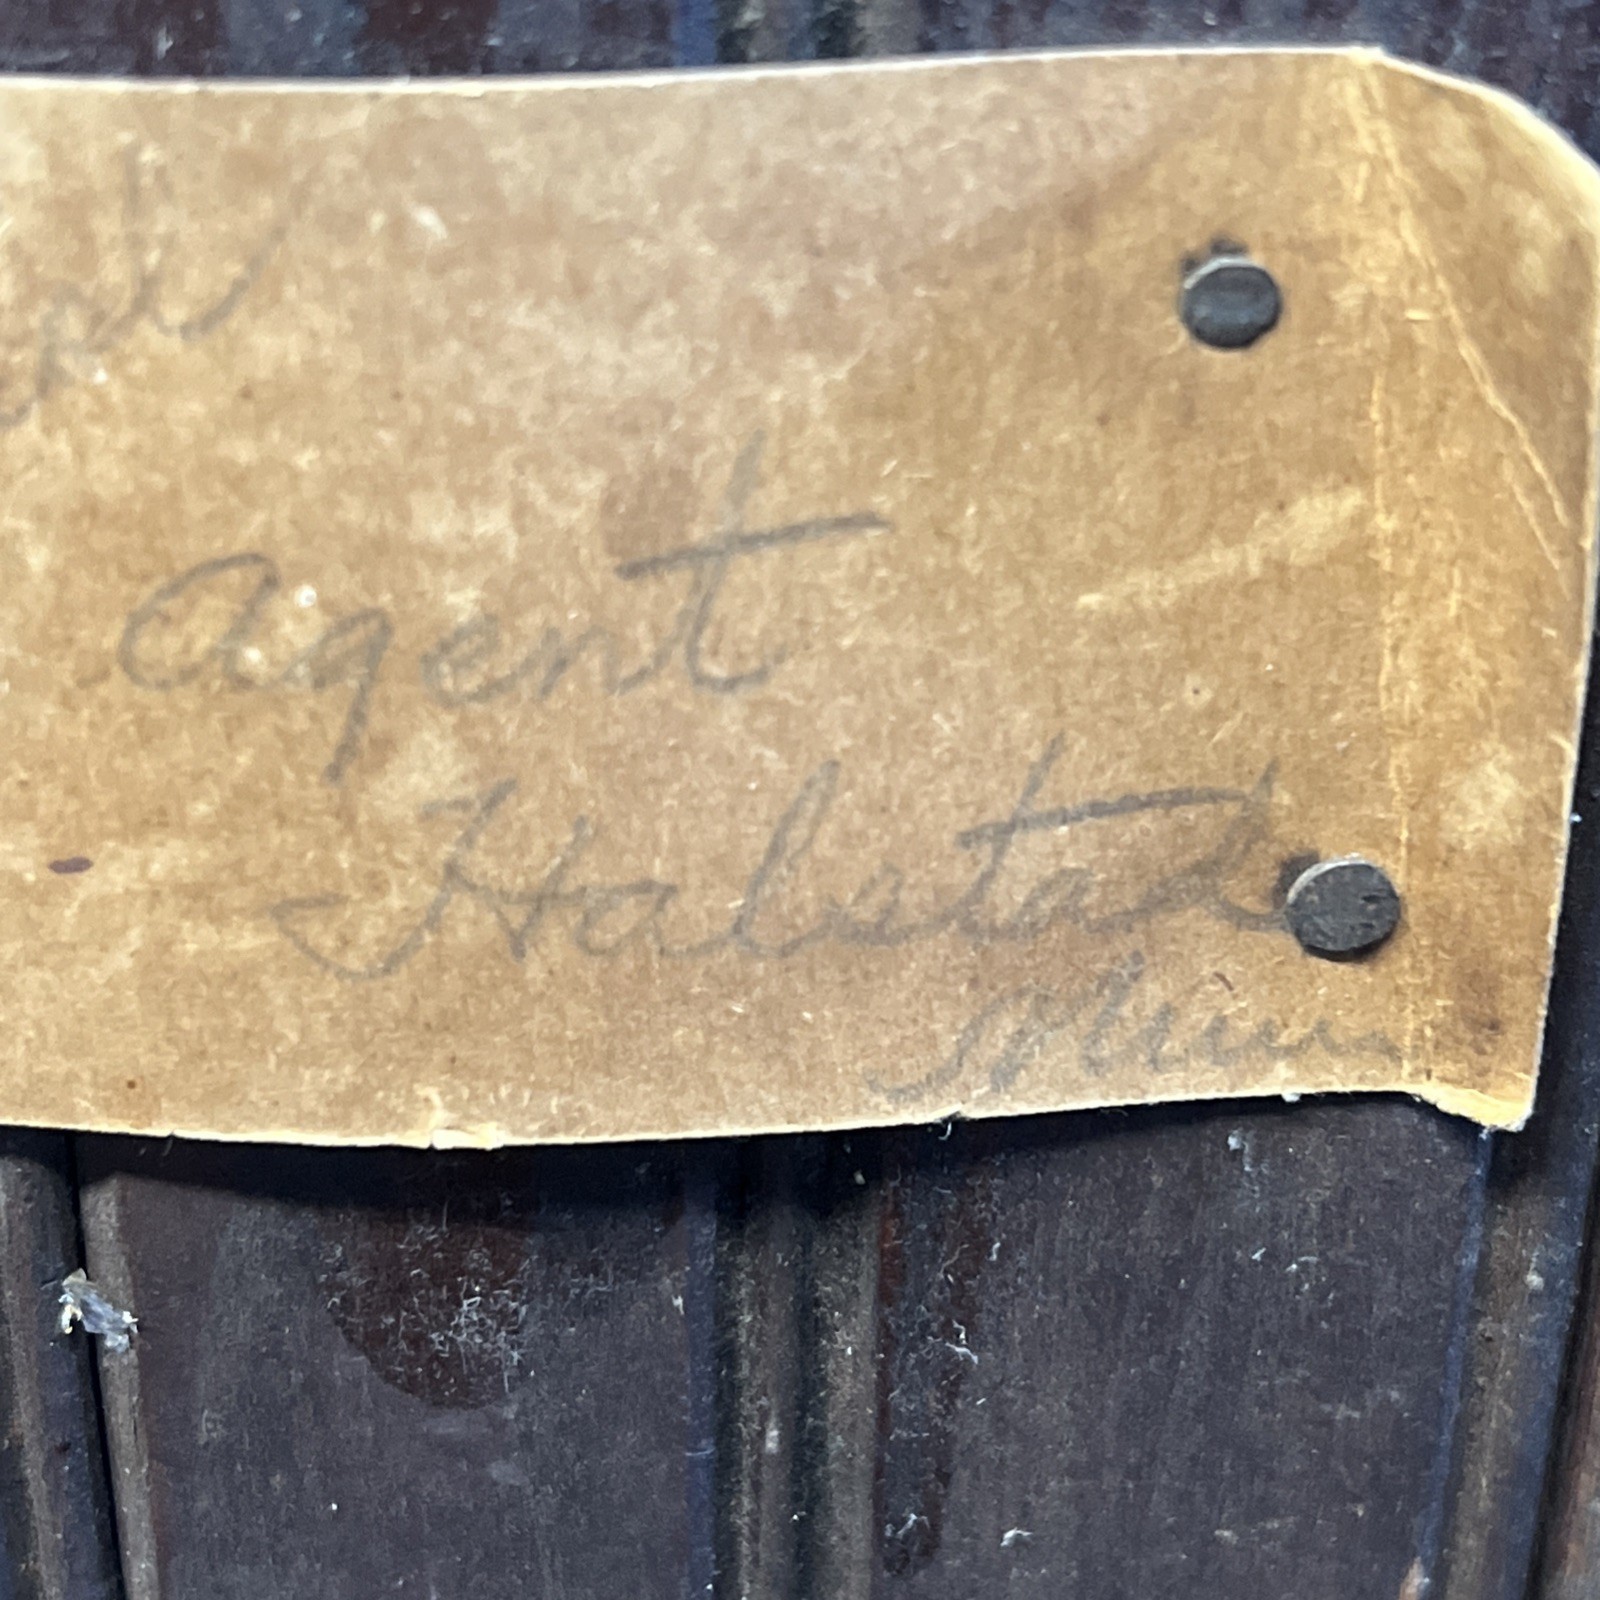 Agent
Halstad
Minn